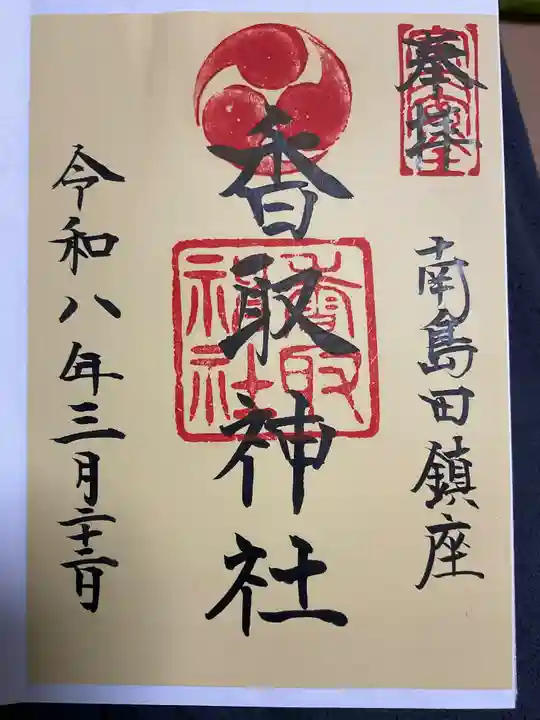 奉拝
南島田鎮座
香取神社
香取神社
令和八年三月二十二日